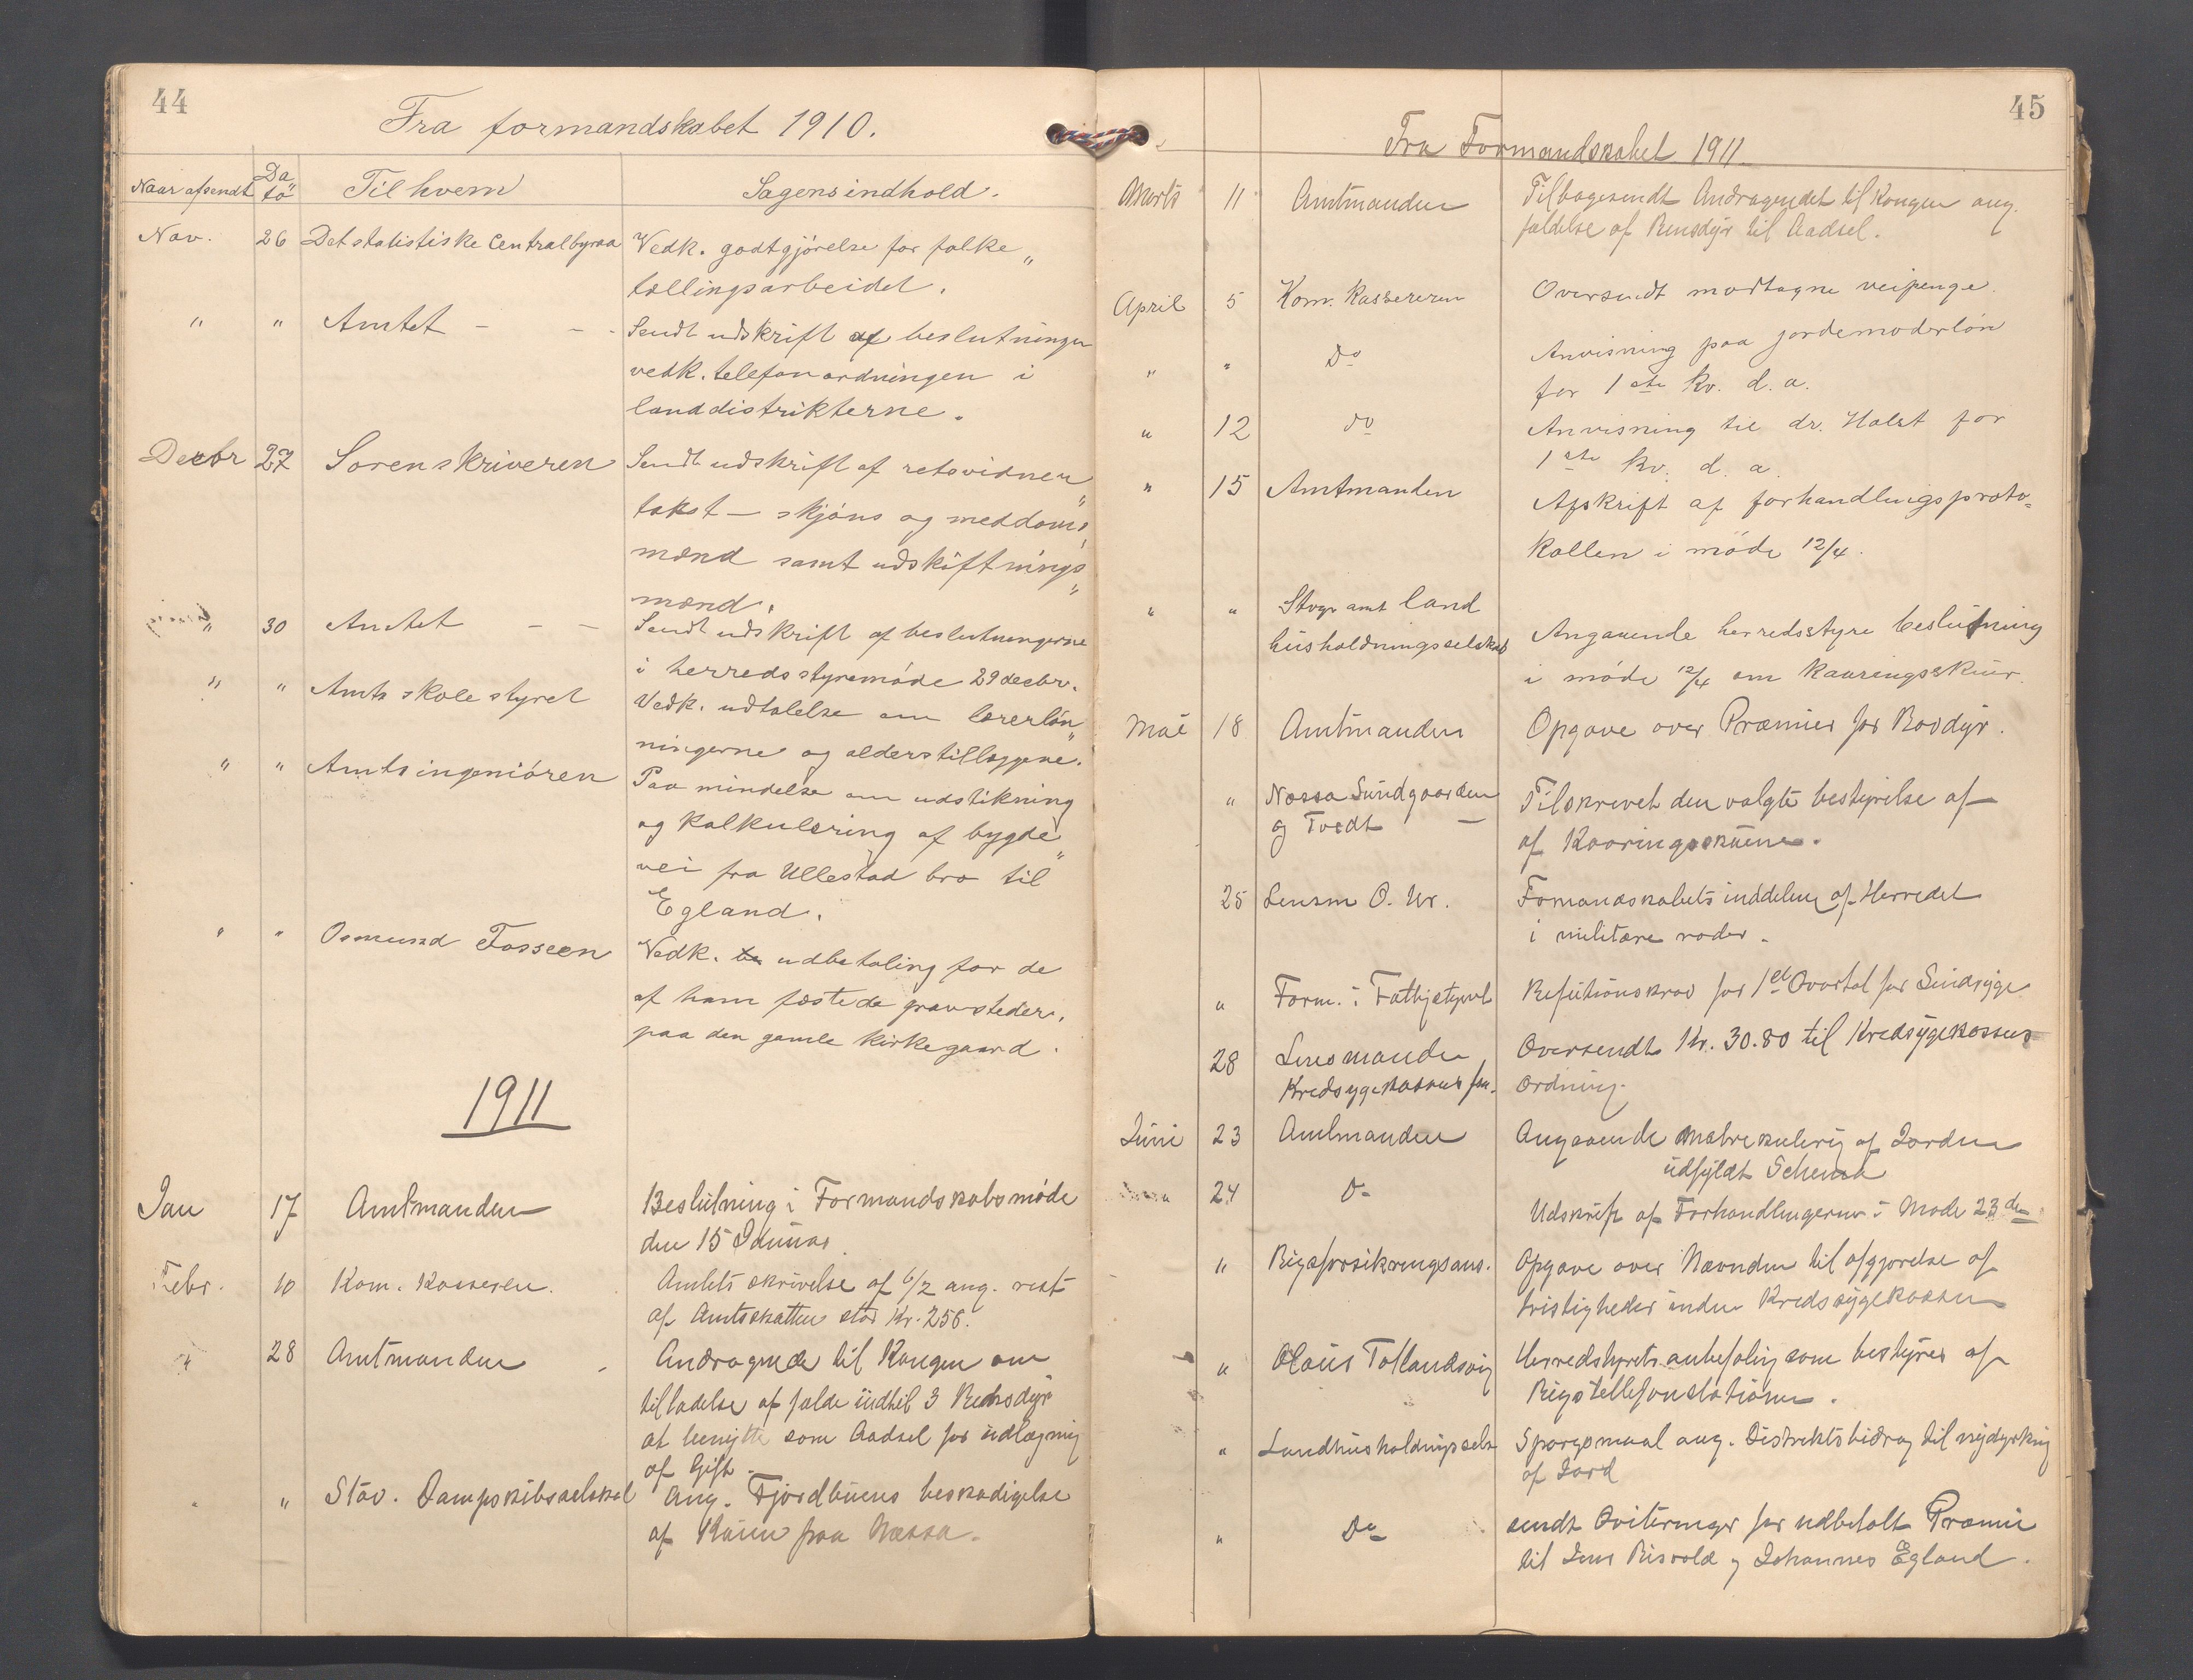 44
Fra formandskabet 1910.
Naar afsendt Dato Til hvem Sagens indhold.
Nov. 26 Det statistiske Centralbyraa Vedk. godtgjørelse for folke„
tællingsarbeidet.
" " Amtet - - Sendt udskrift af beslutninger
vedk. telefonordningen i
landdistrikterne.
Decbr 27 Sorenskriveren Sendt udskrift af retsvidner„
takst - skjøns og meddoms„
mænd samt udskiftnings„
mænd.
" 30 Amtet - - Sendt udskrift af beslutningerne
i herredsstyremøde 29 decbr.
" " Amtsskolestyret Vedk. udtalelse om lærerløn„
ningerne og alderstillæggene.
" " Amtsingeniøren Paamindelse om udstikning
og kalkulering af bygde„
vei fra Ullestad bro til
Egland.
" " Osmund Fosseen Vedk. udbetaling for de
af ham fæstede gravsteder.
paa den gamle kirkegaard.
1911
Jan 17 Amtmanden Beslutning i Formandskabsmøde
den 15 Januar.
Febr. 10 Kom. Kasseren. Amtets skrivelse af 6/2 ang. rest
af Amtsskatten stor Kr. 256.
" 28 Amtmanden - Andragende til Kongen om
tilladelse af fælde indtil 3 Rensdyr
at benytte som Aadsel for udlægning
af Gift.
" " Stav. Dampskibsselskab Ang. Fjordbuens beskadigelse
af Kaien paa Næssa.
45
Fra Formandskabet 1911
Marts 11 Amtmanden Tilbagesendt Andragendet til Kongen ang.
fældelse af Rensdyr til Aadsel.
April 5 Kom. Kassereren Oversendt modtagne veipenge.
" " Do Anvisning paa jordemoderløn
for 1ste kv. d. a.
" 12 do Anvisning til dr. Holst for
1ste kv. d. a.
" 15 Amtmanden Afskrift af forhandlingsproto-
kollen i møde 12/4.
" " Stvgr amt land
husholdningsselskab Angaaende herredsstyre beslutning
i møde 12/4 om kaaringsskuer.
Mai 18 Amtmanden Opgave over Præmier for Rovdyr.
" Næssa Sundgaarden
og Tvedt - Tilskrevet den valgte bestyrelse af
af Kaaringsskuene.
25 Lensm O. Ur. Fomandskabets inddeling af Herredet
i militære roder.
" Form. i Fattigstyret Refutionskrav for 1et Qvartal for Sindsyge
28 Lensmanden
Kredssygekassens fm. Oversendt Kr. 30.80 til Kredsygekassens
Ordning.
Juni 23 Amtmanden Angaaende Matrikulering af Jorden
udfyldt Schema
" 24 Do Udskrift af Forhandlingerne i Møde 23de
" Rigsforsikringsans. Opgave over Nævnden til afgjørelse af
tvistigheder inden Kredssygekassen
" Olaus Tøtlandsvig Herredstyrets anbefaling som bestyrer af
Rigstellefonstationen.
" Landhusholdningsselsk Spørgsmaal ang. Distriktsbidrag til nydyrking
af Jord
" Do sendt Qviteringer for udbetalt Præmie
til Jens Risvold og Johannes Egland.